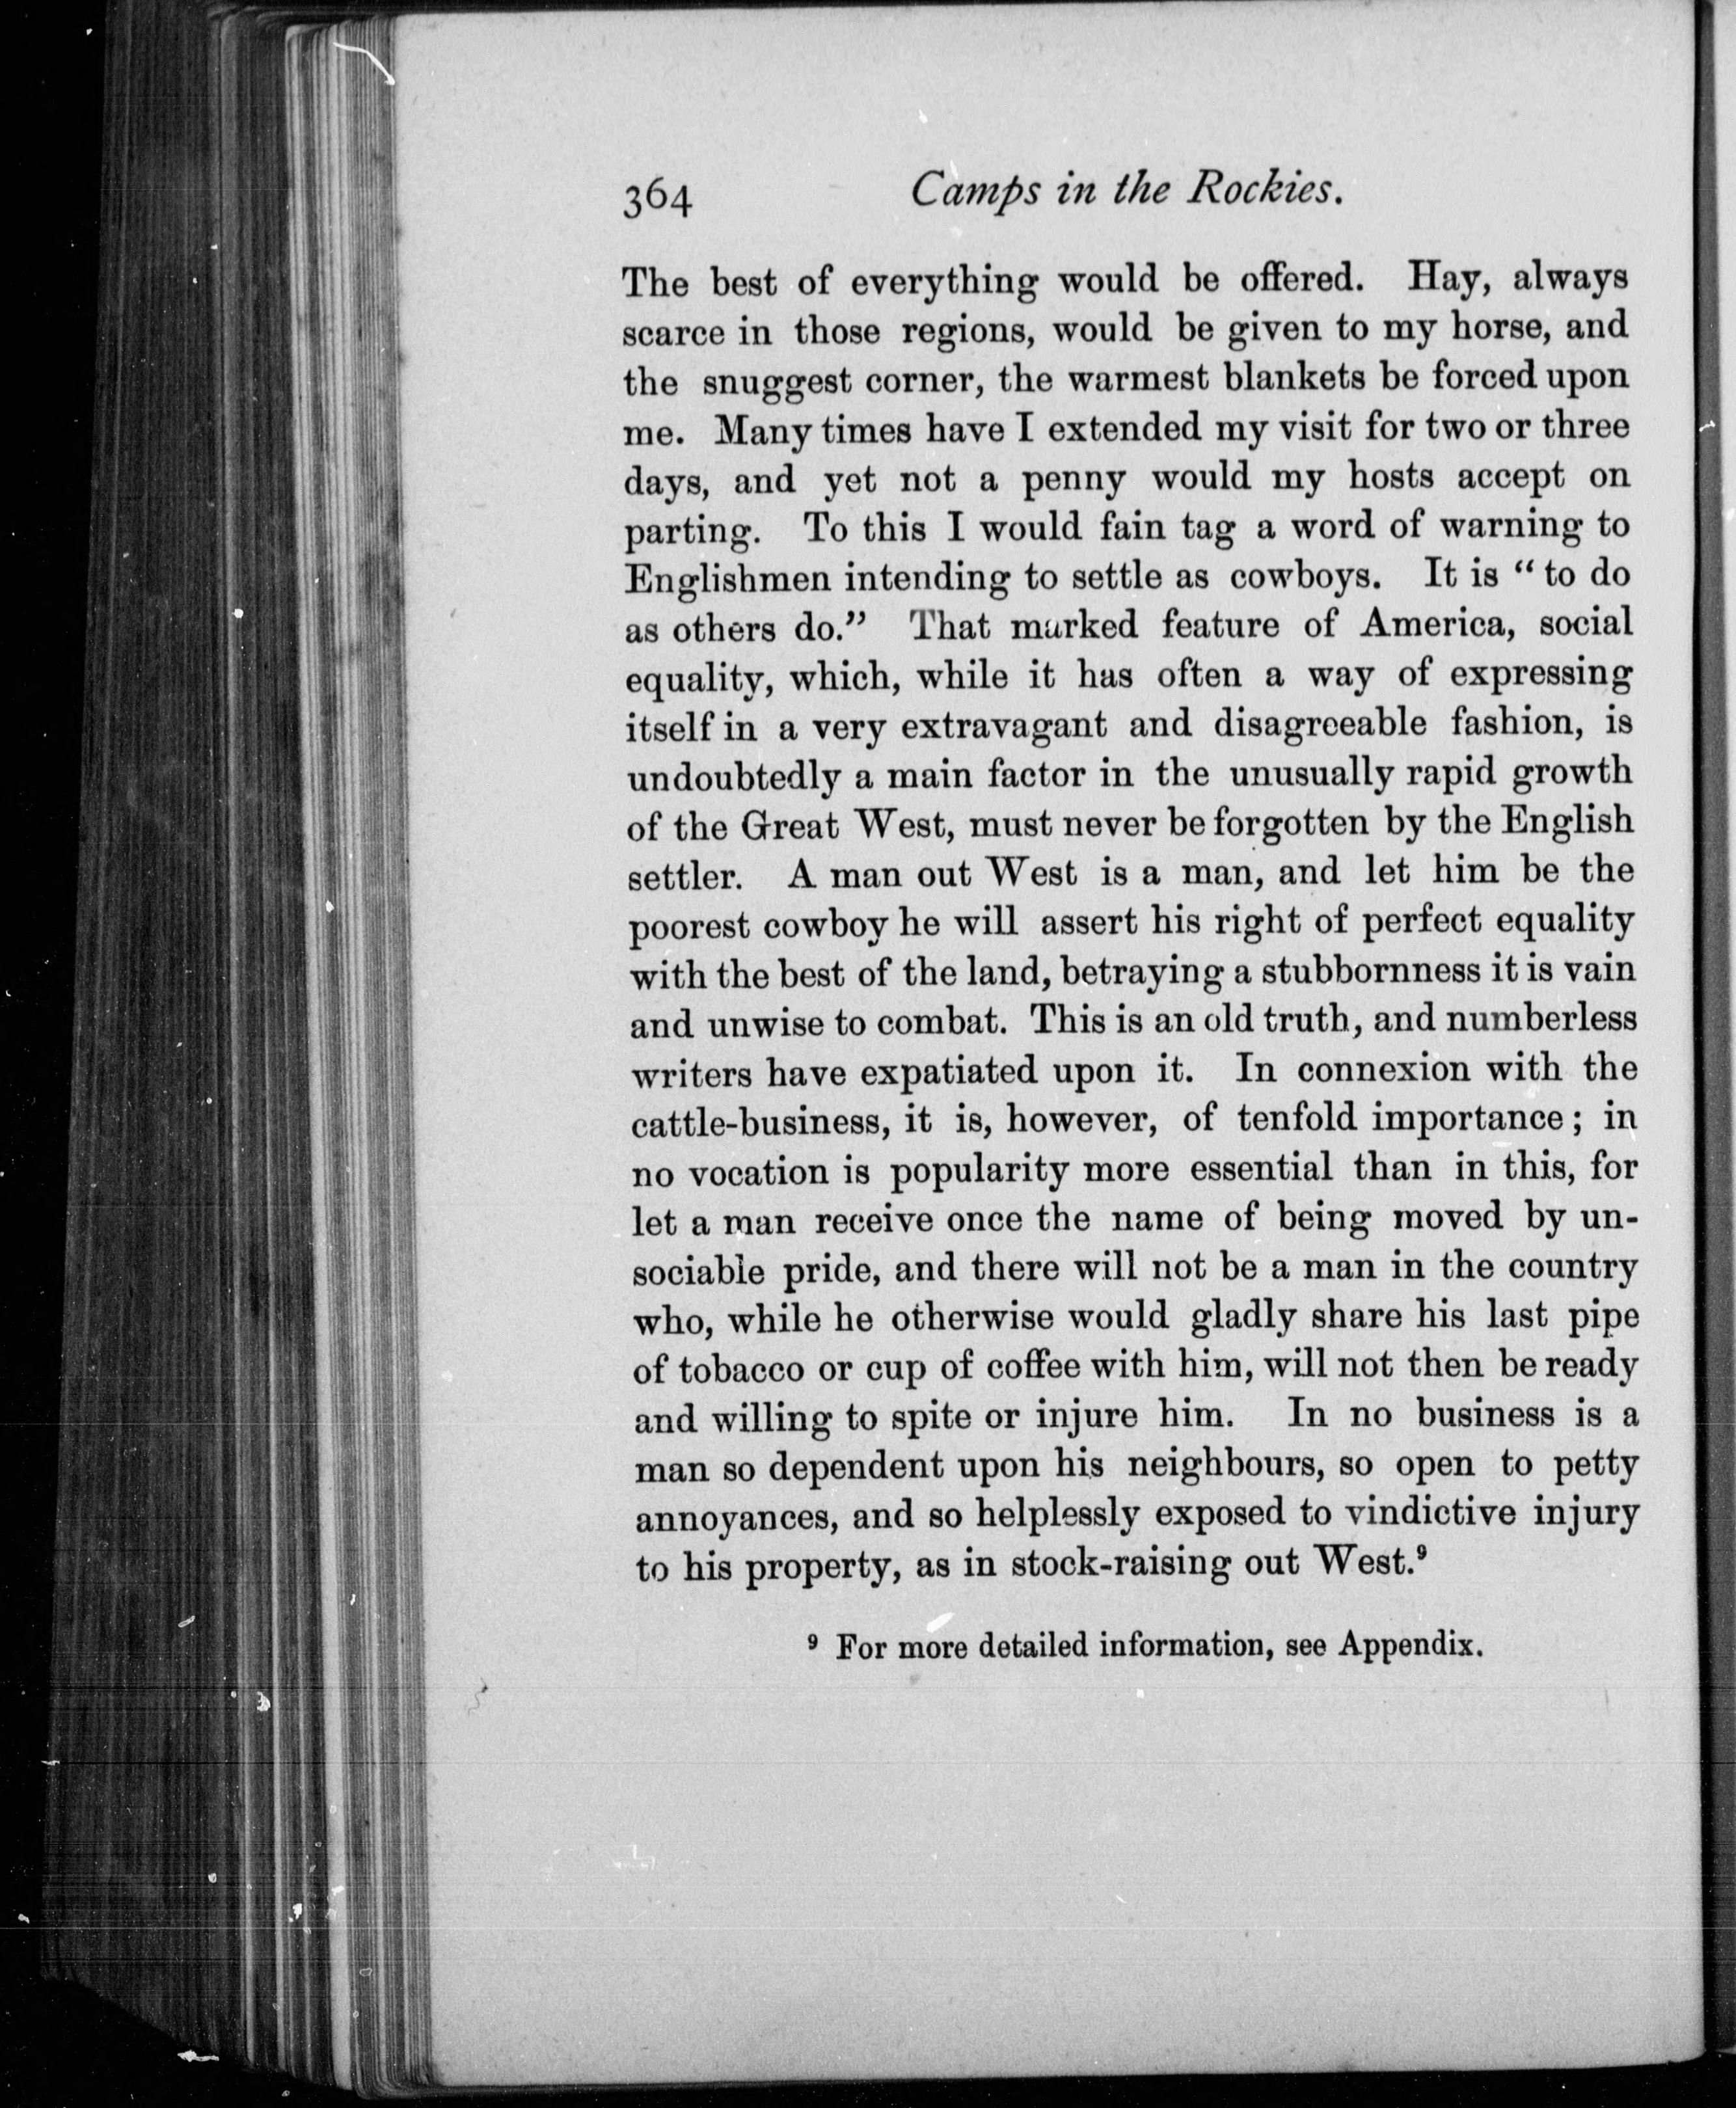 364 Camps in the Rockies.
The best of everything would be offered. Hay, always
scarce in those regions, would be given to my horse, and
the snuggest corner, the warmest blankets be forced upon
me. Many times have I extended my visit for two or three
days, and yet not a penny would my hosts accept on
parting. To this I would fain tag a word of warning to
Englishmen intending to settle as cowboys. It is “ to do
as others do.” That marked feature of America, social
equality, which, while it has often a way of expressing
itself in a very extravagant and disagreeable fashion, is
undoubtedly a main factor in the unusually rapid growth
of the Great West, must never be forgotten by the English
settler. A man out West is a man, and let him be the
poorest cowboy he will assert his right of perfect equality
with the best of the land, betraying a stubbornness it is vain
and unwise to combat. This is an old truth, and numberless
writers have expatiated upon it. In connexion with the
cattle-business, it is, however, of tenfold importance; in
no vocation is popularity more essential than in this, for
let a man receive once the name of being moved by un-
sociable pride, and there will not be a man in the country
who, while he otherwise would gladly share his last pipe
of tobacco or cup of coffee with him, will not then be ready
and willing to spite or injure him. In no business is a
man so dependent upon his neighbours, so open to petty
annoyances, and so helplessly exposed to vindictive injury
to his property, as in stock-raising out West.⁹
⁹ For more detailed information, see Appendix.